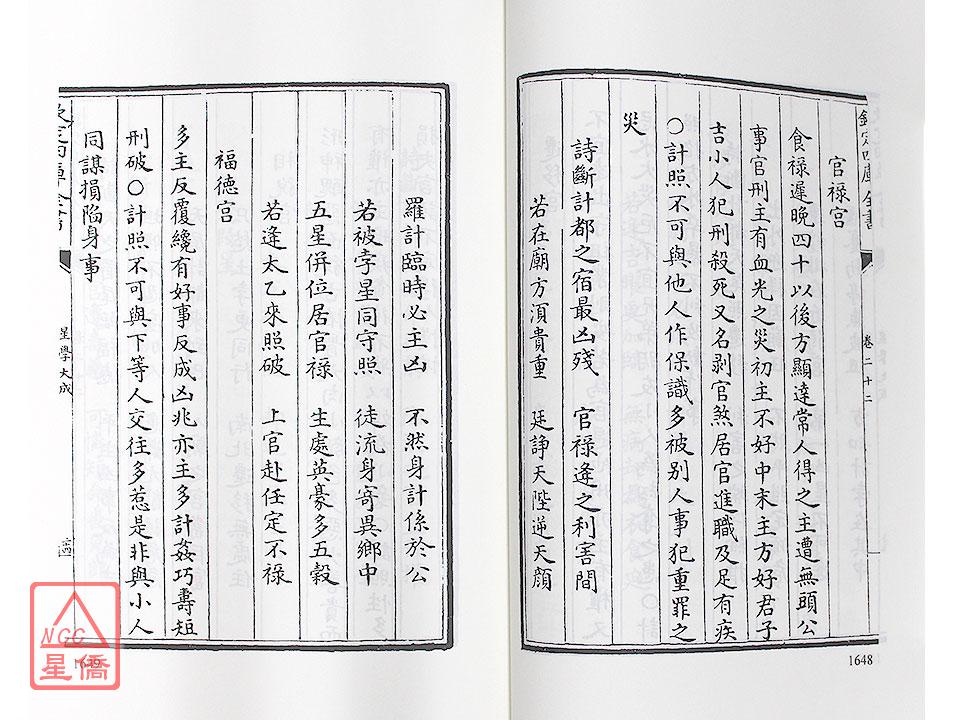 欽定四庫全書
卷二十二
官禄宫
食禄遲晚四十以後方顯達常人得之主遭無頭公
事官刑主有血光之災初主不好中末主方好君子
吉小人犯刑殺死又名剥官煞居官進職及足有疾
○計照不可與他人作保識多被别人事犯重罪之
災
詩斷計都之宿最凶殘 官禄逢之利害間
若在廟方湏貴重 廷諍天陛逆天顔
1648
羅計臨時必主凶 不然身計係於公
若被孛星同守照 徒流身寄異鄉中
五星併位居官禄 生處英豪多五穀
若逢太乙來照破 上官赴任定不禄
福德宫
多主反覆纔有好事反成凶兆亦主多計姦巧壽短
刑破○計照不可與下等人交往多惹是非與小人
同謀損陷身事
欽定四庫全書
星學大成
1649
NCC
星僑